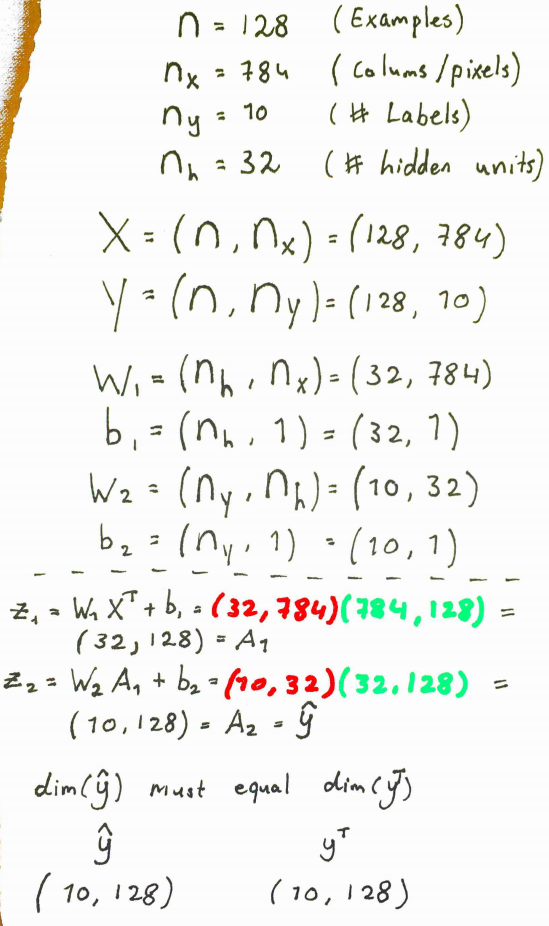 n = 128 (Examples)
nx = 784 (Colums/pixels)
ny = 10 (# Labels)
nh = 32 (# hidden units)
X = (n, nx) = (128, 784)
Y = (n, ny) = (128, 10)
W1 = (nh, nx) = (32, 784)
b1 = (nh, 1) = (32, 1)
W2 = (ny, nh) = (10, 32)
b2 = (ny, 1) = (10, 1)
z1 = W1 Xᵀ + b1 = (32, 784)(784, 128) =
(32, 128) = A1
z2 = W2 A1 + b2 = (10, 32)(32, 128) =
(10, 128) = A2 = ŷ
dim(ŷ) must equal dim(yᵀ)
ŷ yᵀ
(10, 128) (10, 128)